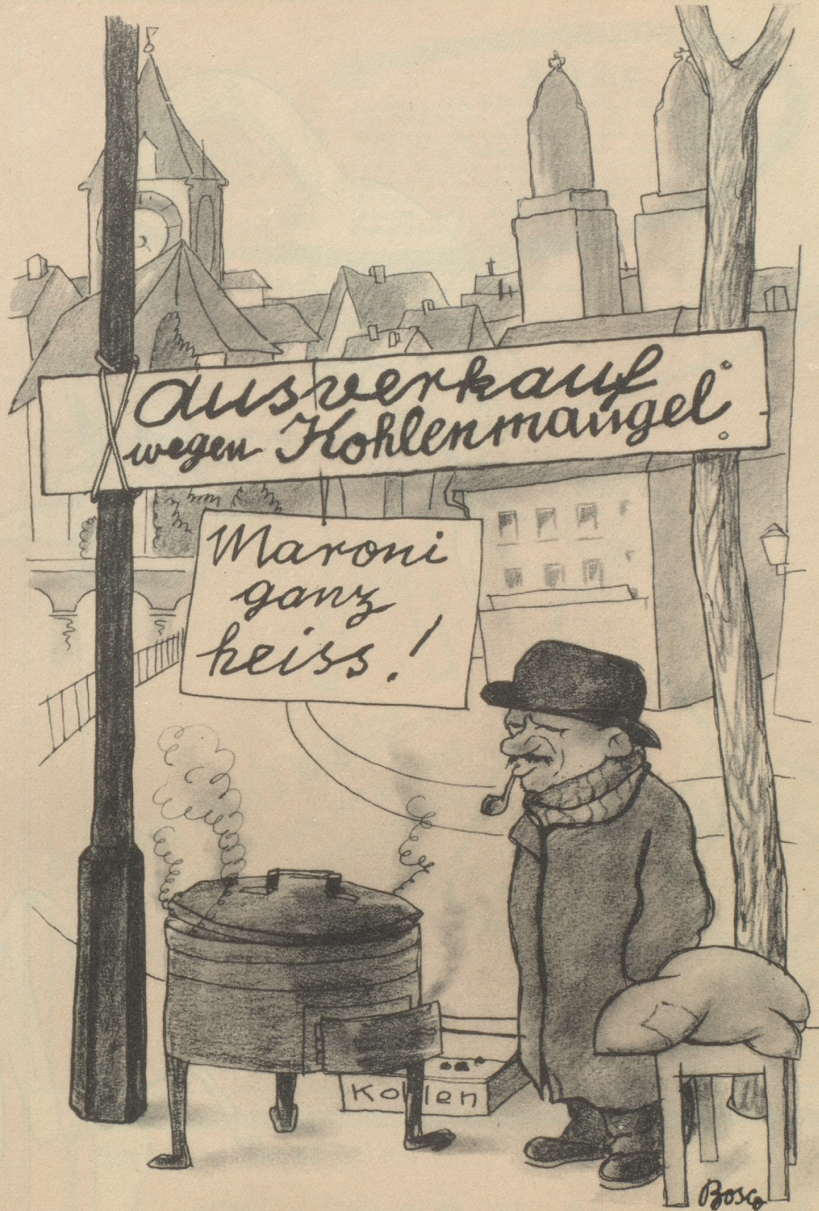 Ausverkauf
wegen Kohlenmangel
Maroni
ganz
heiss!
Kohlen
Bosco